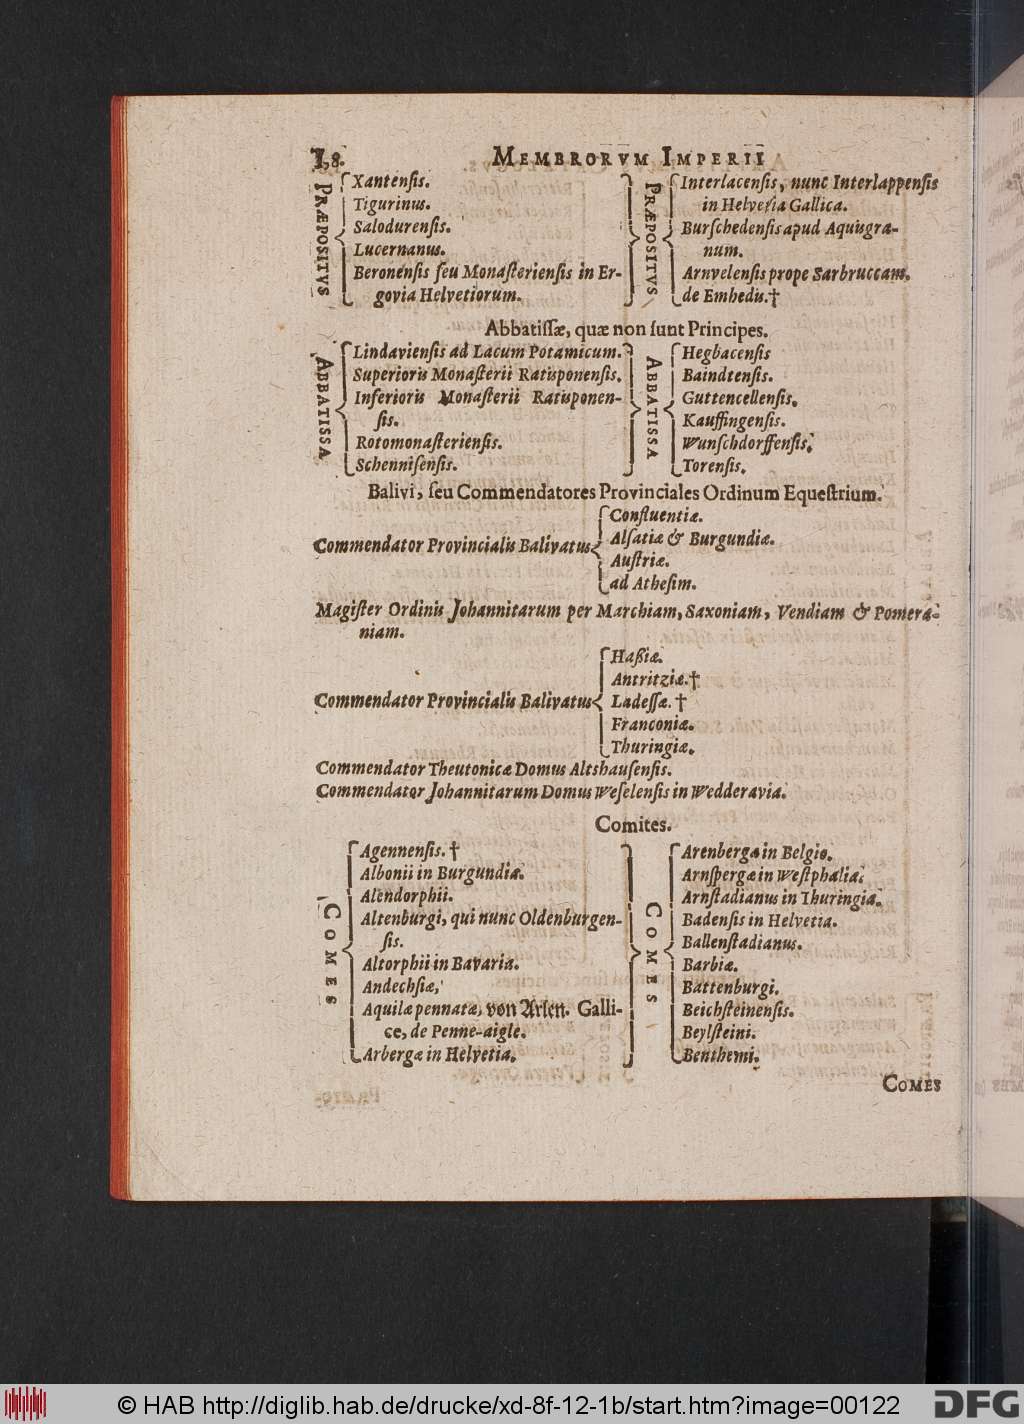 8. MEMBRORVM IMPERII
PRÆPOSITVS
Xantenſis.
Tigurinus.
Salodurenſis.
Lucernanus.
Beronenſis ſeu Monaſterienſis in Er-
govia Helvetiorum.
PRÆPOSITVS
Interlacenſis, nunc Interlappenſis
in Helvetia Gallica.
Burſchedenſis apud Aquisgra-
num.
Arnvelenſis prope Sarbruccam.
de Emhedis.†
Abbatiſſæ, quæ non ſunt Principes.
ABBATISSA
Lindavienſis ad Lacum Potamicum.
Superioris Monaſterii Ratisponenſis.
Inferioris Monaſterii Ratisponen-
ſis.
Rotomonaſterienſis.
Scheniſenſis.
ABBATISSA
Hegbacenſis
Baindtenſis.
Guttencellenſis.
Kauffingenſis.
Wunſchdorffenſis.
Torenſis.
Balivi, ſeu Commendatores Provinciales Ordinum Equeſtrium.
Commendator Provincialis Balivatus
Confluentiæ.
Alſatiæ & Burgundiæ.
Auſtriæ.
ad Atheſim.
Magiſter Ordinis Johannitarum per Marchiam, Saxoniam, Vendiam & Pomera-
niam.
Commendator Provincialis Balivatus
Haßiæ.
Antritziæ.†
Ladeſſæ.†
Franconiæ.
Thuringiæ.
Commendator Theutonicæ Domus Altshauſenſis.
Commendator Johannitarum Domus Weſelenſis in Wedderavia.
Comites.
COMES
Agennenſis.†
Albonii in Burgundia.
Alendorphii.
Altenburgi, qui nunc Oldenburgen-
ſis.
Altorphii in Bavaria.
Andechſiæ,
Aquilæ pennatæ, von Arlen. Galli-
ce, de Penne-aigle.
Arbergæ in Helvetia.
COMES
Arenbergæ in Belgio.
Arnſpergæ in Weſtphalia.
Arnſtadianus in Thuringia.
Badenſis in Helvetia.
Ballenſtadianus.
Barbiæ.
Battenburgi.
Beichſteinenſis.
Beylſteini.
Benthemi.
COMES
© HAB http://diglib.hab.de/drucke/xd-8f-12-1b/start.htm?image=00122
DFG